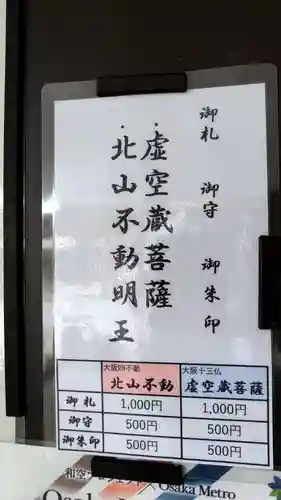 御札　御守　御朱印
・虚空蔵菩薩
・北山不動明王
大阪四不動
北山不動
大阪十三仏
虚空蔵菩薩
御札 1,000円 1,000円
御守 500円 500円
御朱印 500円 500円
Osaka Metro